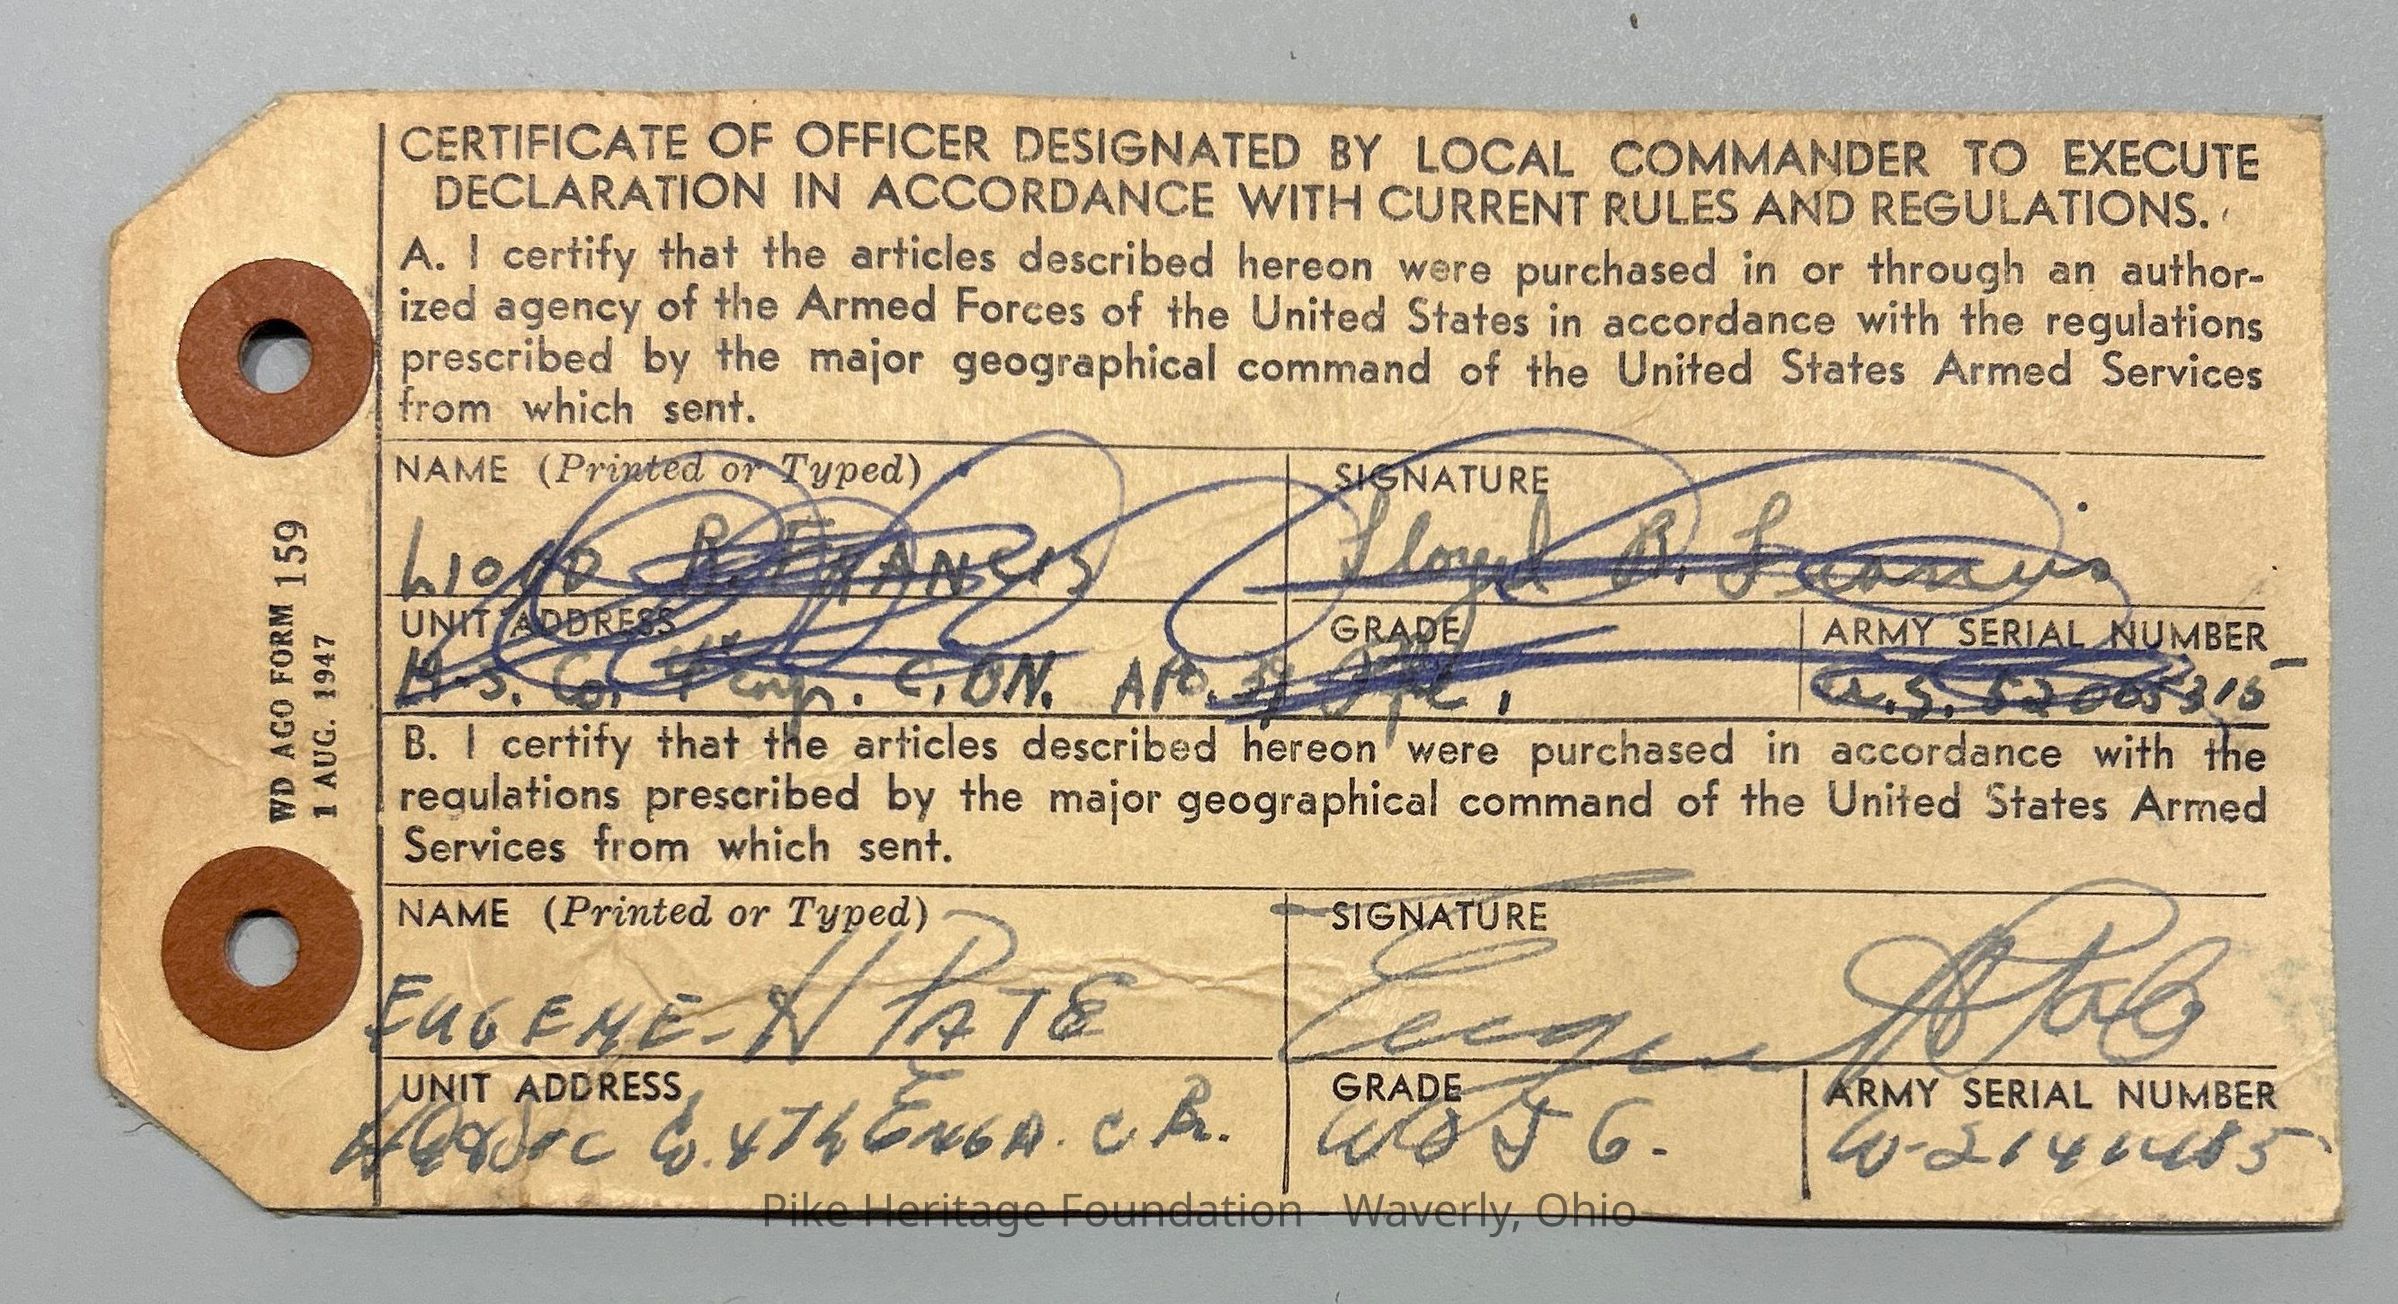 CERTIFICATE OF OFFICER DESIGNATED BY LOCAL COMMANDER TO EXECUTE
DECLARATION IN ACCORDANCE WITH CURRENT RULES AND REGULATIONS.
A. I certify that the articles described hereon were purchased in or through an author-
ized agency of the Armed Forces of the United States in accordance with the regulations
prescribed by the major geographical command of the United States Armed Services
from which sent.
NAME (Printed or Typed) SIGNATURE
Lloyd R. FRANCIS Lloyd R. Francis
UNIT ADDRESS GRADE ARMY SERIAL NUMBER
H.S. Co. 4th Engr. C. BN. APO. Cpl. U.S. 52005315
B. I certify that the articles described hereon were purchased in accordance with the
regulations prescribed by the major geographical command of the United States Armed
Services from which sent.
NAME (Printed or Typed) SIGNATURE
EUGENE H PATE Eugene H Pate
UNIT ADDRESS GRADE ARMY SERIAL NUMBER
Co. 4Th ENGR. C Bn. WOJG. W-
WD AGO FORM 159
1 AUG. 1947
Pike Heritage Foundation - Waverly, Ohio